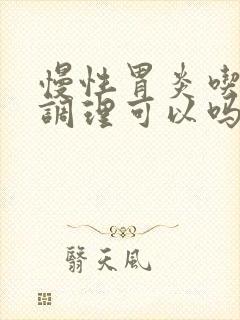 慢性胃炎喫
調理可以吗
翳天風